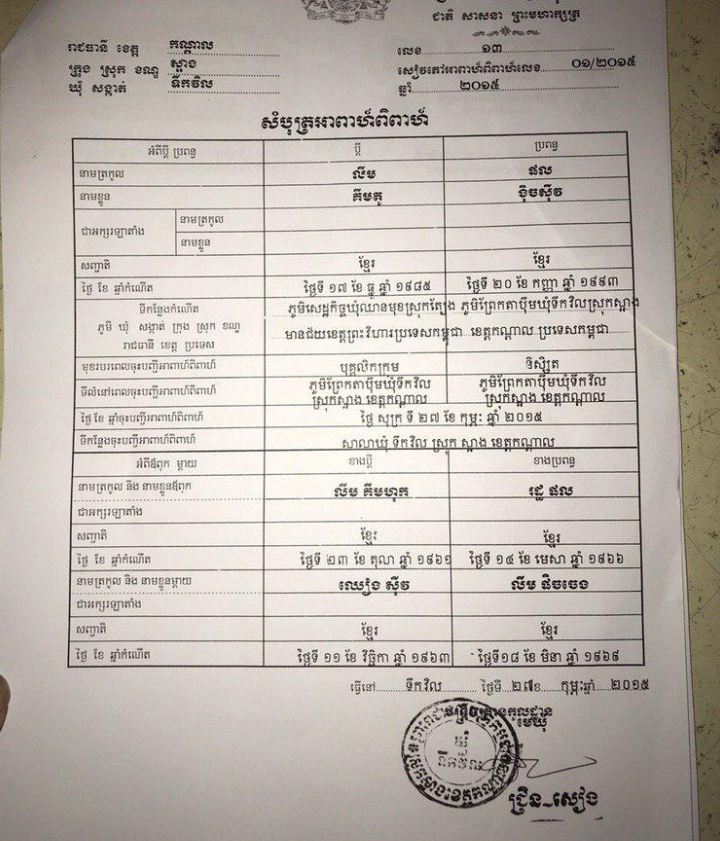 ជាតិ សាសនា ព្រះមហាក្សត្រ
រាជធានី ខេត្ត កណ្តាល
ក្រុង ស្រុក ខណ្ឌ ស្អាង
ឃុំ សង្កាត់ ទឹកវិល
លេខ ១៣
សៀវភៅអាពាហ៍ពិពាហ៍លេខ ០១/២០១៥
ឆ្នាំ ២០១៥
សំបុត្រអាពាហ៍ពិពាហ៍
អំពីប្តី ប្រពន្ធ ប្តី ប្រពន្ធ
នាមត្រកូល លឹម ផល
នាមខ្លួន គីមតូ ង៉ិចស៊ីវ
ជាអក្សរឡាតាំង នាមត្រកូល
នាមខ្លួន
សញ្ជាតិ ខ្មែរ ខ្មែរ
ថ្ងៃ ខែ ឆ្នាំកំណើត ថ្ងៃទី ១៧ ខែ ធ្នូ ឆ្នាំ ១៩៨៥ ថ្ងៃទី ២០ ខែ កញ្ញា ឆ្នាំ ១៩៩៣
ទីកន្លែងកំណើត ភូមិសេដ្ឋកិច្ចឃុំឈានមុខស្រុកត្បែង ភូមិព្រែកតាប៉ឹមឃុំទឹកវិលស្រុកស្អាង
ភូមិ ឃុំ សង្កាត់ ក្រុង ស្រុក ខណ្ឌ មានជ័យខេត្តព្រះវិហារប្រទេសកម្ពុជា ខេត្តកណ្តាល ប្រទេសកម្ពុជា
រាជធានី ខេត្ត ប្រទេស
មុខរបរពេលចុះបញ្ជីអាពាហ៍ពិពាហ៍ បុគ្គលិកក្រុម និស្សិត
ទីលំនៅពេលចុះបញ្ជីអាពាហ៍ពិពាហ៍ ភូមិព្រែកតាប៉ឹមឃុំទឹកវិល ភូមិព្រែកតាប៉ឹមឃុំទឹកវិល
ស្រុកស្អាង ខេត្តកណ្តាល ស្រុកស្អាង ខេត្តកណ្តាល
ថ្ងៃ ខែ ឆ្នាំចុះបញ្ជីអាពាហ៍ពិពាហ៍ ថ្ងៃ សុក្រ ទី ២៧ ខែ កុម្ភៈ ឆ្នាំ ២០១៥
ទីកន្លែងចុះបញ្ជីអាពាហ៍ពិពាហ៍ សាលាឃុំ ទឹកវិល ស្រុក ស្អាង ខេត្តកណ្តាល
អំពីឪពុក ម្តាយ ខាងប្តី ខាងប្រពន្ធ
នាមត្រកូល និង នាមខ្លួនឪពុក លឹម គីមហុក រដ្ឋ ផល
ជាអក្សរឡាតាំង
សញ្ជាតិ ខ្មែរ ខ្មែរ
ថ្ងៃ ខែ ឆ្នាំកំណើត ថ្ងៃទី ២៣ ខែ តុលា ឆ្នាំ ១៩៦១ ថ្ងៃទី ១៤ ខែ មេសា ឆ្នាំ ១៩៦៦
នាមត្រកូល និង នាមខ្លួនម្តាយ ឈៀង ស៊ីវ លឹម ផិចចេង
ជាអក្សរឡាតាំង
សញ្ជាតិ ខ្មែរ ខ្មែរ
ថ្ងៃ ខែ ឆ្នាំកំណើត ថ្ងៃទី ១១ ខែ វិច្ឆិកា ឆ្នាំ ១៩៦៣ ថ្ងៃទី១៨ ខែ មិនា ឆ្នាំ ១៩៦៩
ធ្វើនៅ ទឹកវិល ថ្ងៃទី ២៧ខែ កុម្ភៈឆ្នាំ ២០១៥
មន្ត្រីអត្រានុកូលដ្ឋាន
មេឃុំ
ឃុំ
ទឹកវិល
ជ្រិន សៀង